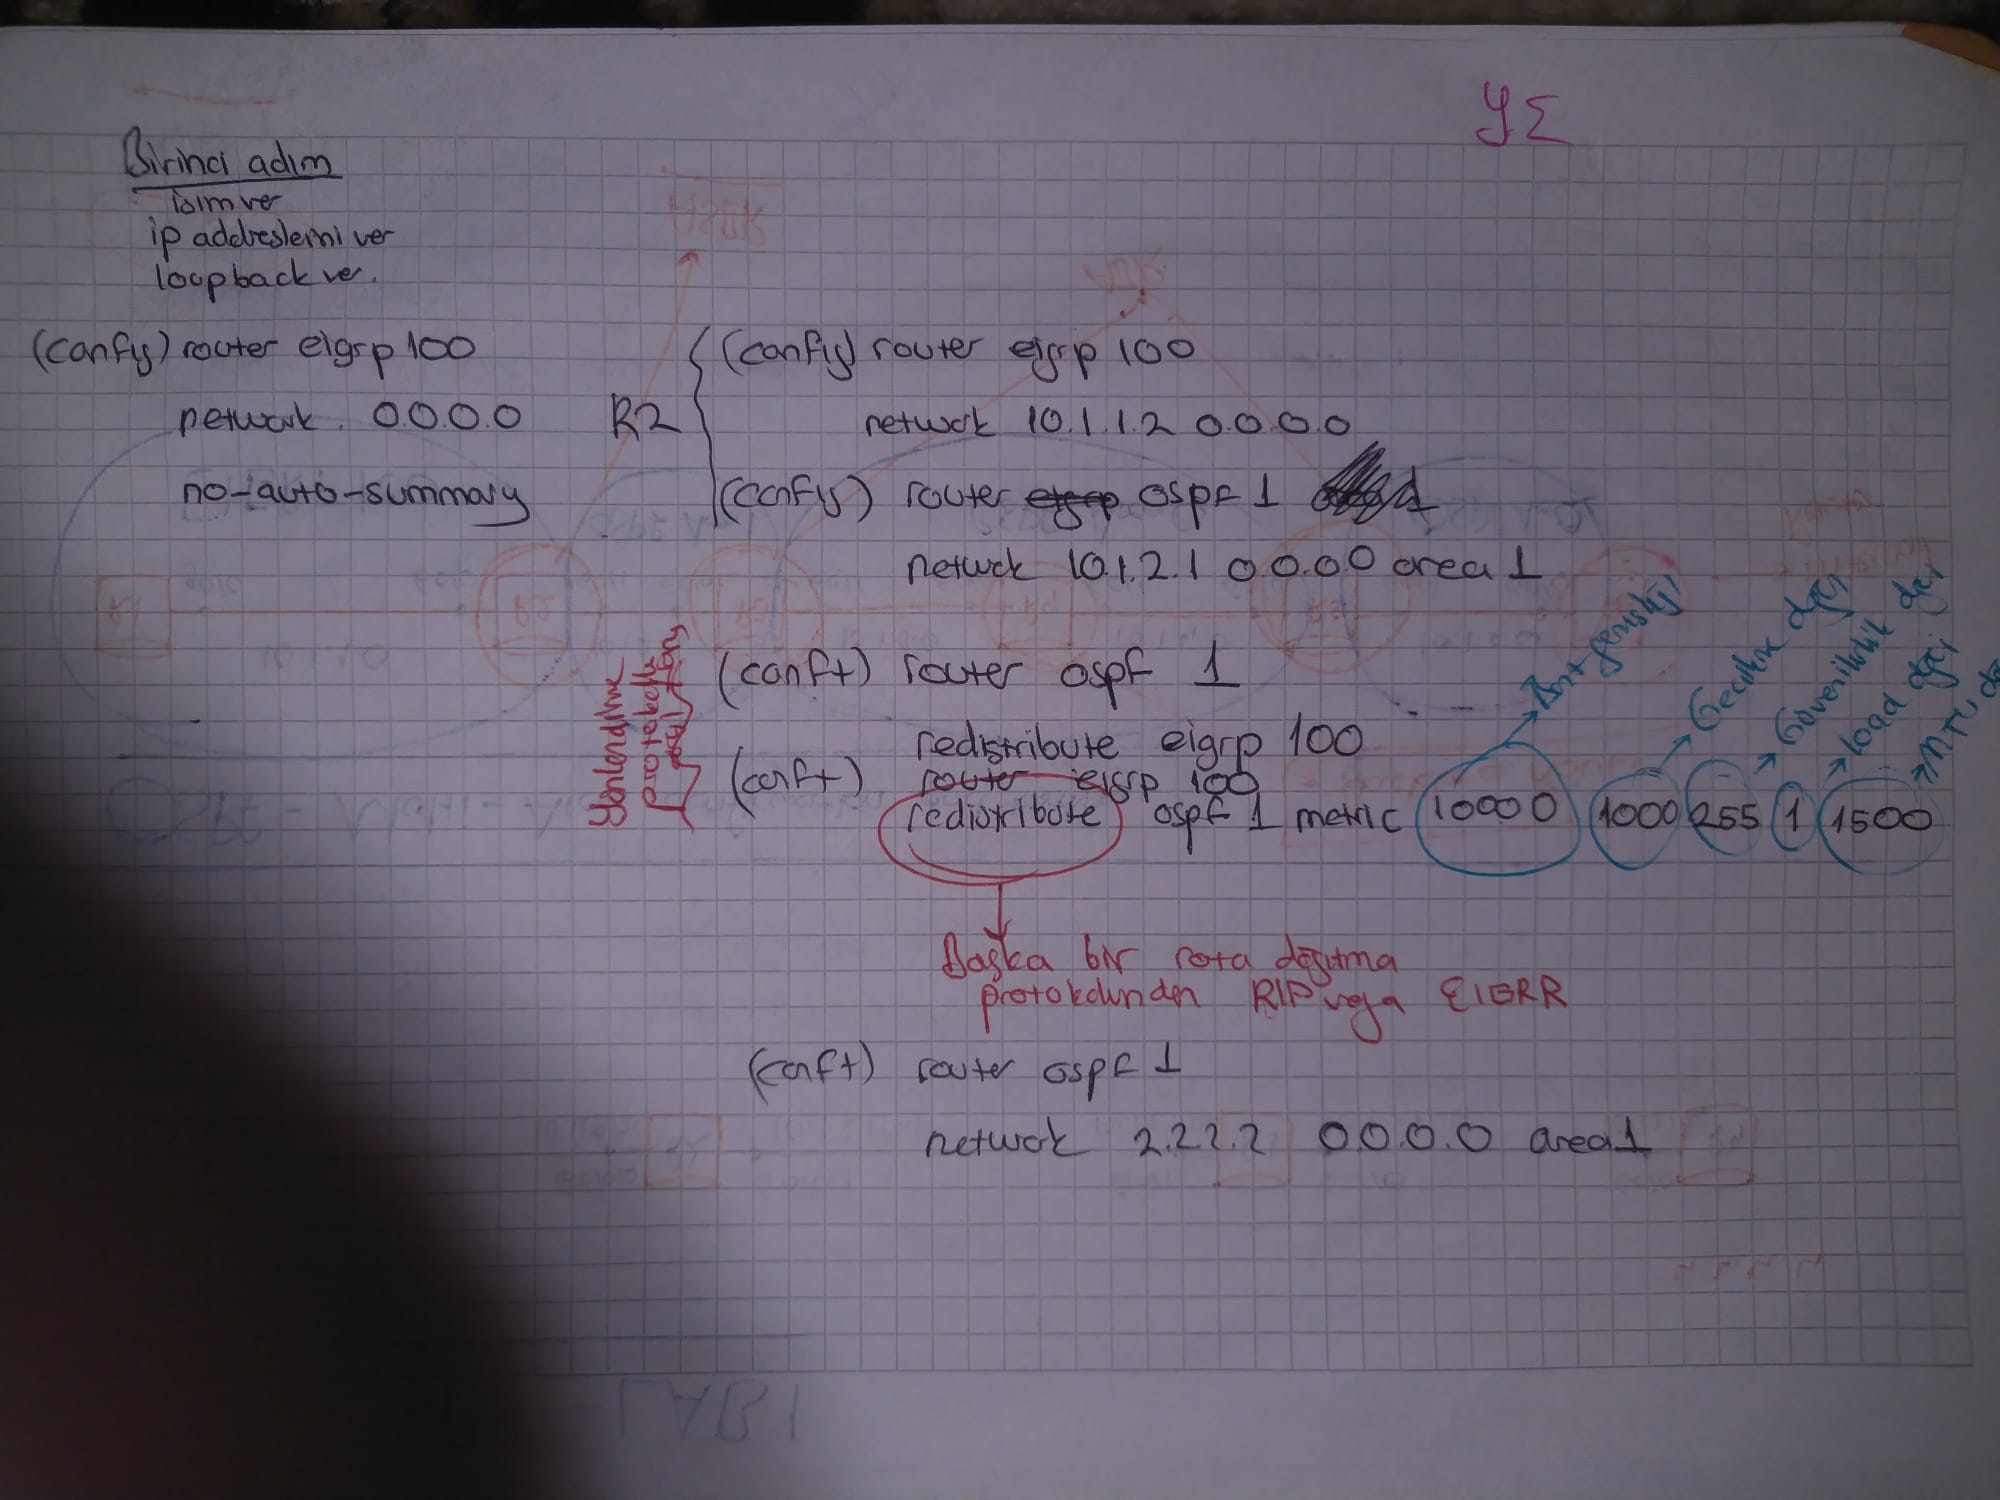 YΣ
Birinci adım
isim ver
ip addreslerini ver
loopback ver.
(config) router eigrp 100
network. 0.0.0.0
no-auto-summary
R2
(config) router eigrp 100
network 10.1.1.2 0.0.0.0
(config) router eigrp ospf 1
network 10.1.2.1 0.0.0.0 area 1
(conft) router ospf 1
redistribute eigrp 100
(conft) router eigrp 100
redistribute ospf 1 metric 10000 1000 255 1 1500
Yönlendirme
protokollü
Bant genişliği
Gecikme değeri
Güvenilirlik değ
load değeri
MTU
Başka bir rota dağıtma
protokolünden RIP veya EIGRR
(conft) router ospf 1
network 2.2.2.2 0.0.0.0 area 1
LAB1